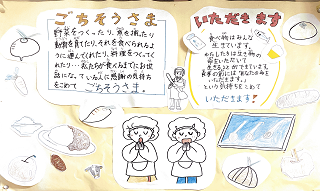 ごちそうさま
野菜をつくったり、魚を捕ったり
動物を育てたり、それを食べられるよう
に運んでくれたり、料理をつくってく
れたり…私たちが食べるまでにお世
話になっている人に感謝の気持ち
をこめて ごちそうさま.
いただきます
食べ物はみんな
生きています。
わたしたちは生き物の
命をいただいて
生きることができています。
食事の前には
いただきます。」
という気持ちをこめて
いただきます!